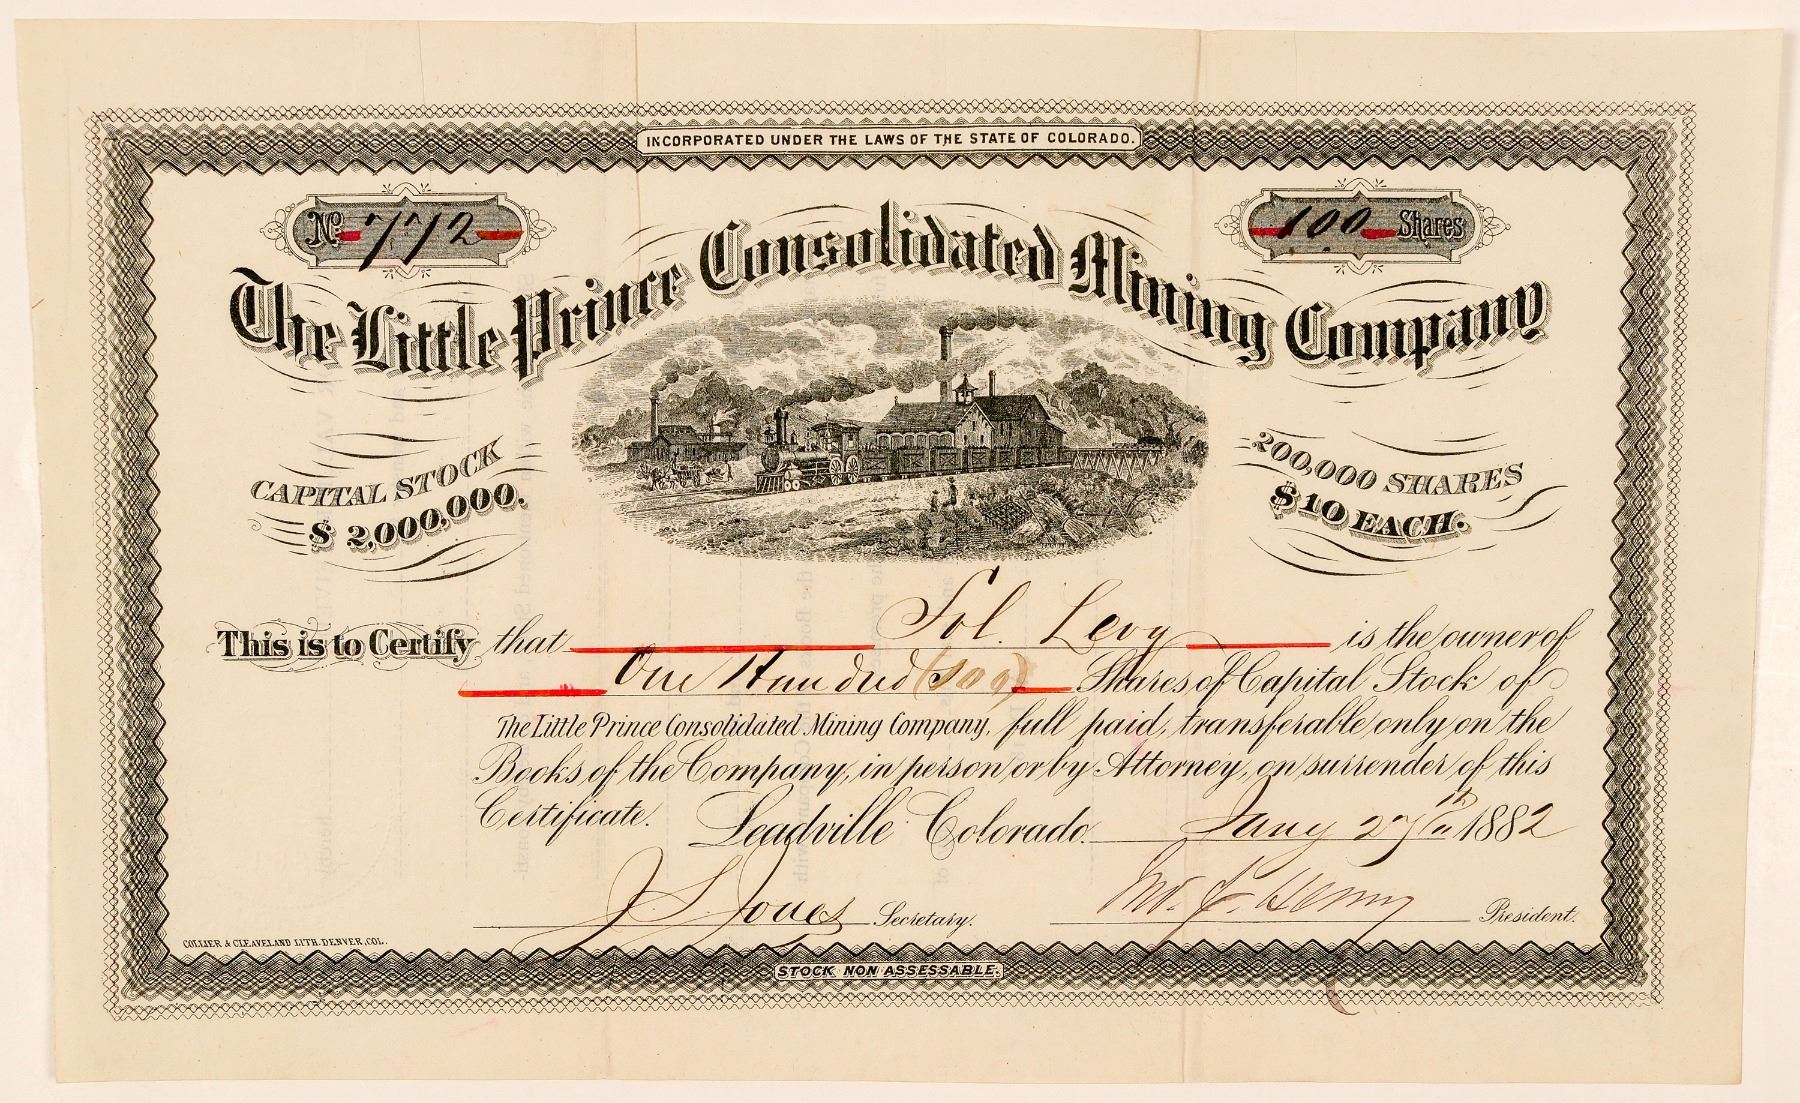 INCORPORATED UNDER THE LAWS OF THE STATE OF COLORADO.
No 772
100 Shares
The Little Prince Consolidated Mining Company
CAPITAL STOCK
$ 2,000,000.
200,000 SHARES
$10 EACH.
This is to Certify that Sol. Levy is the owner of
One Hundred (100) Shares of Capital Stock of
The Little Prince Consolidated Mining Company, full paid, transferable only on the
Books of the Company, in person or by Attorney, on surrender of this
Certificate. Leadville Colorado. Jany 27th 1882
J. S. Jones Secretary. Henry President.
COLLIER & CLEAVELAND LITH. DENVER, COL.
STOCK NON ASSESSABLE.